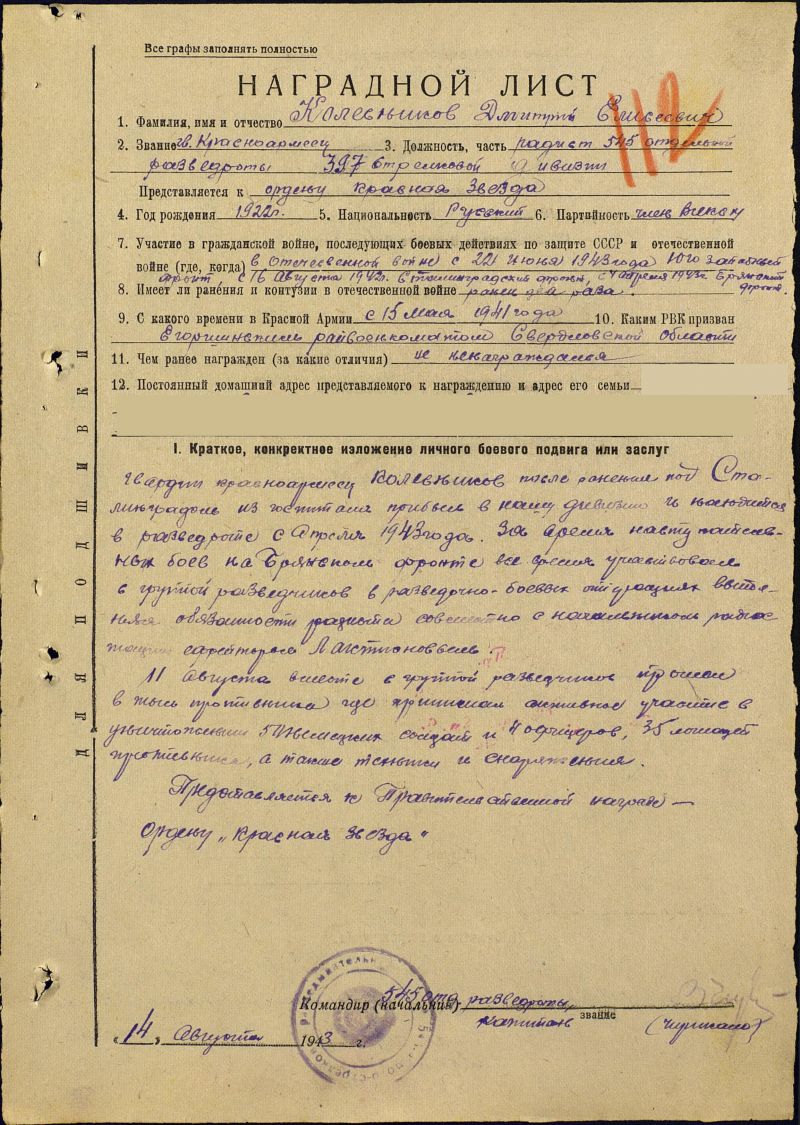 Все графы заполнять полностью
НАГРАДНОЙ ЛИСТ
112
1. Фамилия, имя и отчество Колевников Дмитрий Елисеевич
2. Звание гв. Красноармеец 3. Должность, часть радист 545 отдельной
разведроты 397 стрелковой дивизии
Представляется к ордену Красная Звезда
4. Год рождения 1922 г. 5. Национальность Русский 6. Партийность член ВЛКСМ
7. Участие в гражданской войне, последующих боевых действиях по защите СССР и отечественной
войне (где, когда) в отечественной войне с 22 июня 1943 года Юго западный
фронт, с 16 августа 1942 г. Сталинградский фронт, с 4 апреля 1943 г. Брянский
фронт.
8. Имеет ли ранения и контузии в отечественной войне ранен два раза.
9. С какого времени в Красной Армии с 15 мая 1941 года 10. Каким РВК призван
Егоршинским райвоенкоматом Свердловской области
11. Чем ранее награжден (за какие отличия) не награждался
12. Постоянный домашний адрес представляемого к награждению и адрес его семьи
I. Краткое, конкретное изложение личного боевого подвига или заслуг
Гвардии красноармеец Колевников после ранения под Ста-
линградом из госпиталя прибыл в нашу дивизию и находится
в разведроте с Апреля 1943 года. За время наступатель-
ных боев на Брянском фронте все время участвовал
с группой разведчиков в разведочно-боевых операциях выпол-
няя обязанности радиста совместно с начальником радиос-
танции ефрейтором Лактионовым.
11 Августа вместе с группой разведчиков прошел
в тыл противника где принимал активное участие в
уничтожении 54 немецких солдат и 4 офицеров, 35 лошадей
противника, а также техники и снаряжения.
Представляется к Правительственной награде —
Ордену „Красная Звезда"
Командир (начальник) 545 отд. разведроты,
капитан звание
„14" Августа 1943 г.
ДЛЯ ПОДШИВКИ